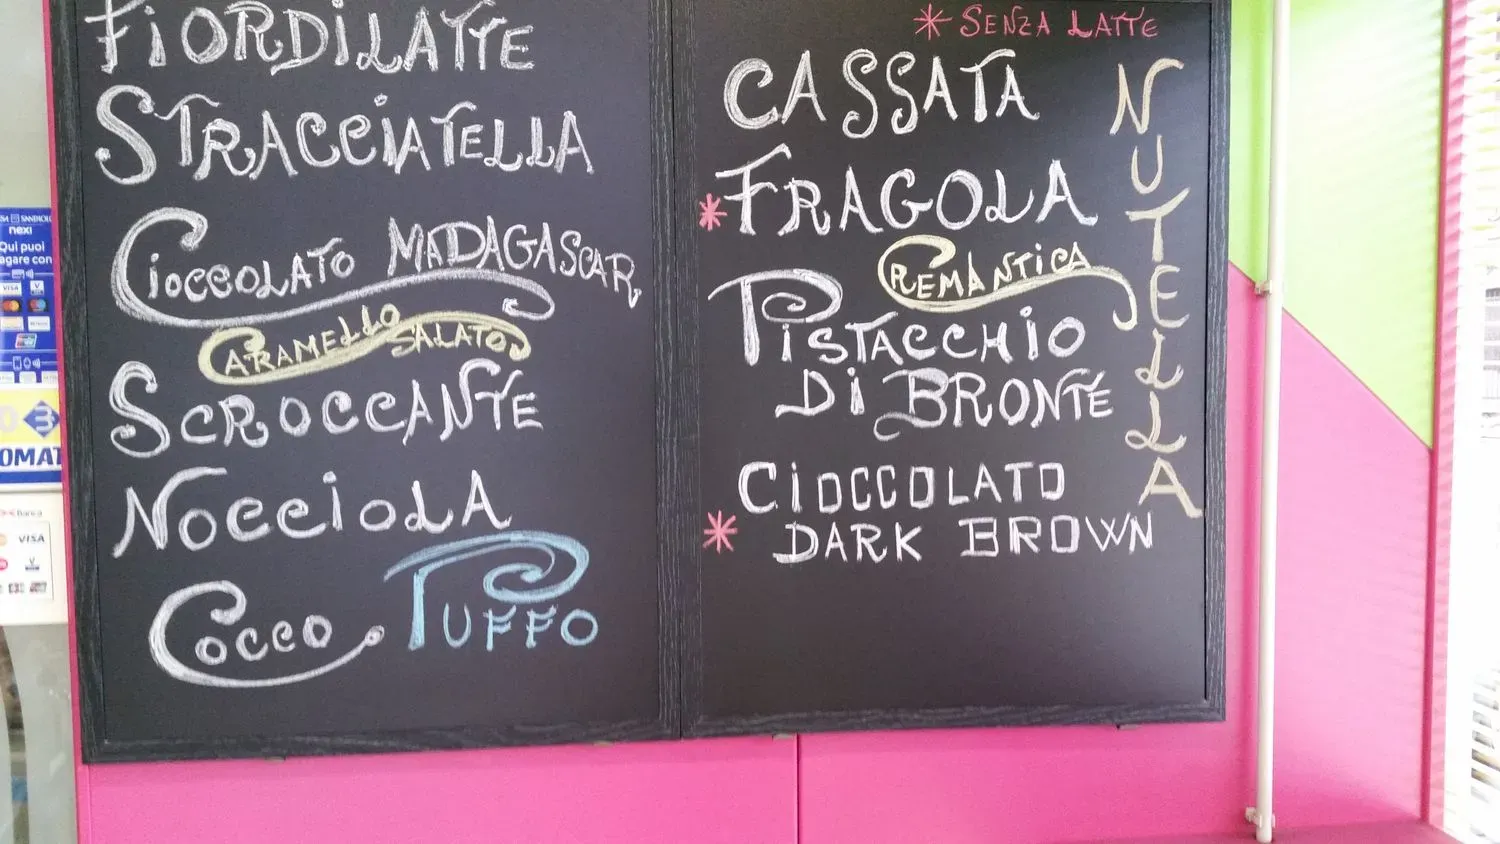 FiORDiLATTE
STRACCiATELLA
CiOCCOLATO MADAGASCAR
CARAMELLO SALATO
SCROCCANTE
NOCCiOLA
COCCO
PUFFO
* SENZA LATTE
CASSATA
* FRAGOLA
CREMANTICA
PiSTACCHIO
Di BRONTE
CiOCCOLATO
* DARK BROWN
NUTELLA
nexi
Qui puoi
VISA
OMAT
Banca
VISA